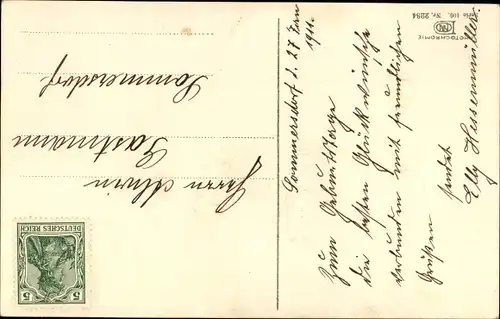 Serie 116. Nr. 2284
NPG
PHOTOCHROMIE
Sommersdorf d. 27 Jan
1911.
Zum Geburtstage
die besten Glückwünsche
verbunden mit freundlichen
Grüßen
sendet
Elly Hessenmüller.
Herrn Alwin
Gastmann
Sommersdorf
DEUTSCHES REICH
5 5